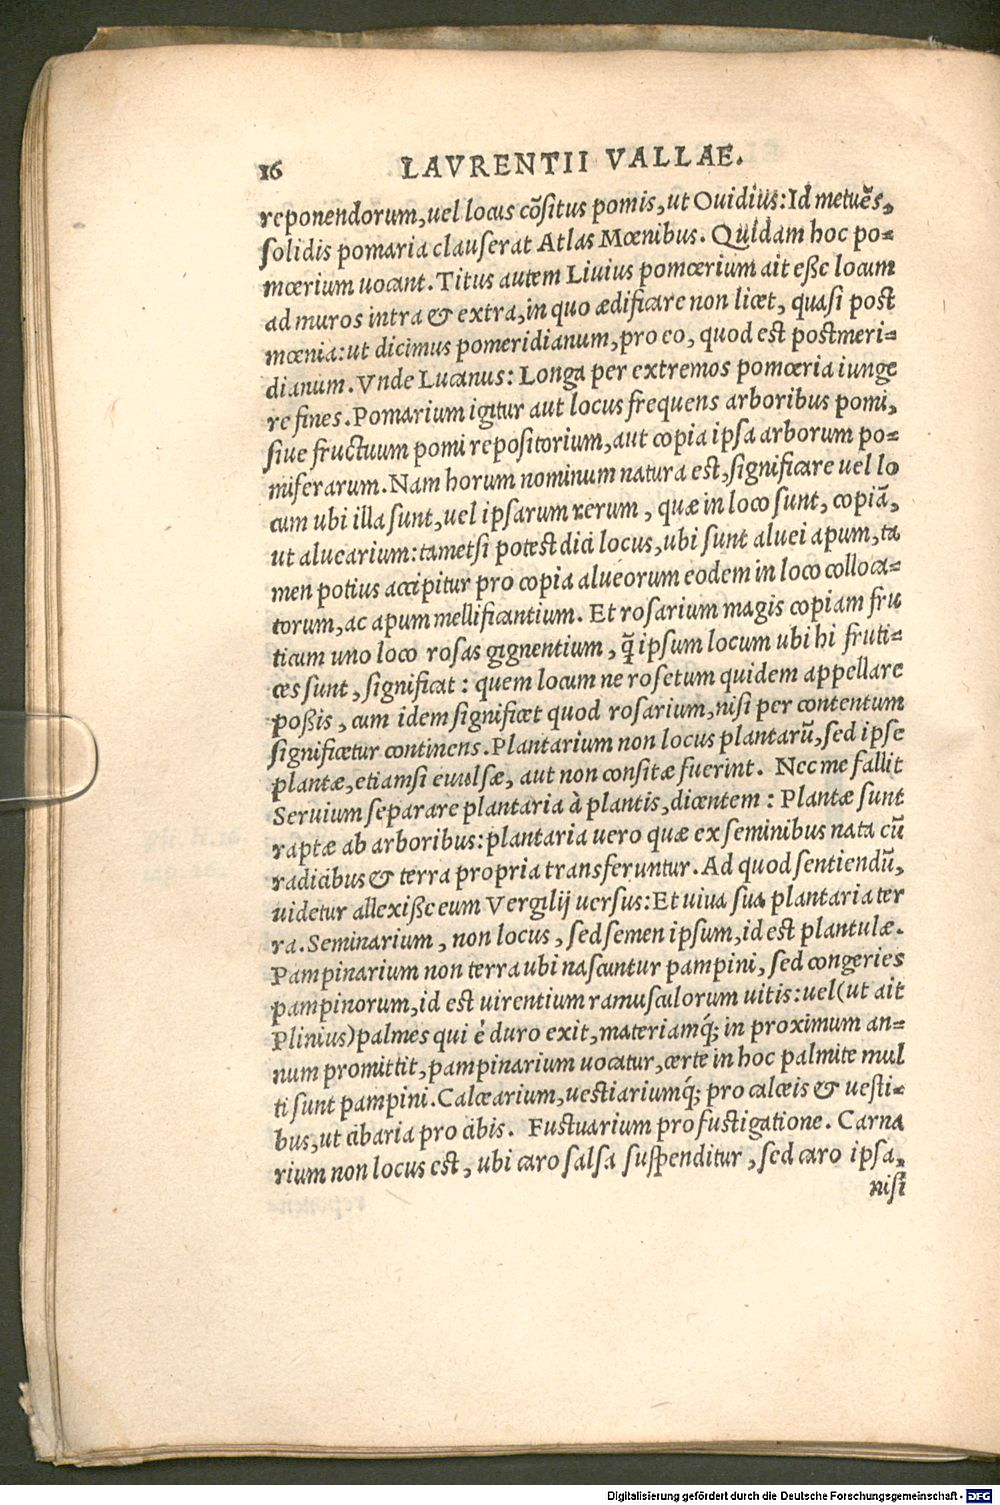 16 LAVRENTII VALLAE.
reponendorum, uel locus cõsitus pomis, ut Ouidius: Id metuẽs,
solidis pomaria clauserat Atlas Mœnibus. Quidam hoc po=
mœrium uocant. Titus autem Liuius pomœrium ait eße locum
ad muros intra & extra, in quo ædificare non licet, quasi post
mœnia: ut dicimus pomeridianum, pro eo, quod est postmeri=
dianum. Vnde Lucanus: Longa per extremos pomœria iunge
re fines. Pomarium igitur aut locus frequens arboribus pomi,
siue fructuum pomi repositorium, aut copia ipsa arborum po=
miferarum. Nam horum nominum natura est, significare uel lo
cum ubi illa sunt, uel ipsarum rerum, quæ in loco sunt, copiã,
ut aluearium: tametsi potest dici locus, ubi sunt aluei apum, ta
men potius accipitur pro copia alueorum eodem in loco colloca=
torum, ac apum mellificantium. Et rosarium magis copiam fru
ticum uno loco rosas gignentium, q̃ ipsum locum ubi hi fruti=
ces sunt, significat: quem locum ne rosetum quidem appellare
poßis, cum idem significet quod rosarium, nisi per contentum
significetur continens. Plantarium non locus plantarũ, sed ipse
plantæ, etiamsi euulsæ, aut non consitæ fuerint. Nec me fallit
Seruium separare plantaria à plantis, dicentem: Plantæ sunt
raptæ ab arboribus: plantaria uero quæ ex seminibus nata cũ
radicibus & terra propria transferuntur. Ad quod sentiendũ,
uidetur allexiße eum Vergilij uersus: Et uiua sua plantaria ter
ra. Seminarium, non locus, sed semen ipsum, id est plantulæ.
Pampinarium non terra ubi nascuntur pampini, sed congeries
pampinorum, id est uirentium ramusculorum uitis: uel (ut ait
Plinius) palmes qui è duro exit, materiamq́; in proximum an=
num promittit, pampinarium uocatur, certe in hoc palmite mul
ti sunt pampini. Calcearium, uestiariumq́; pro calceis & uesti=
bus, ut cibaria pro cibis. Fustuarium pro fustigatione. Carna
rium non locus est, ubi caro salsa suspenditur, sed caro ipsa,
nisi
Digitalisierung gefördert durch die Deutsche Forschungsgemeinschaft - DFG